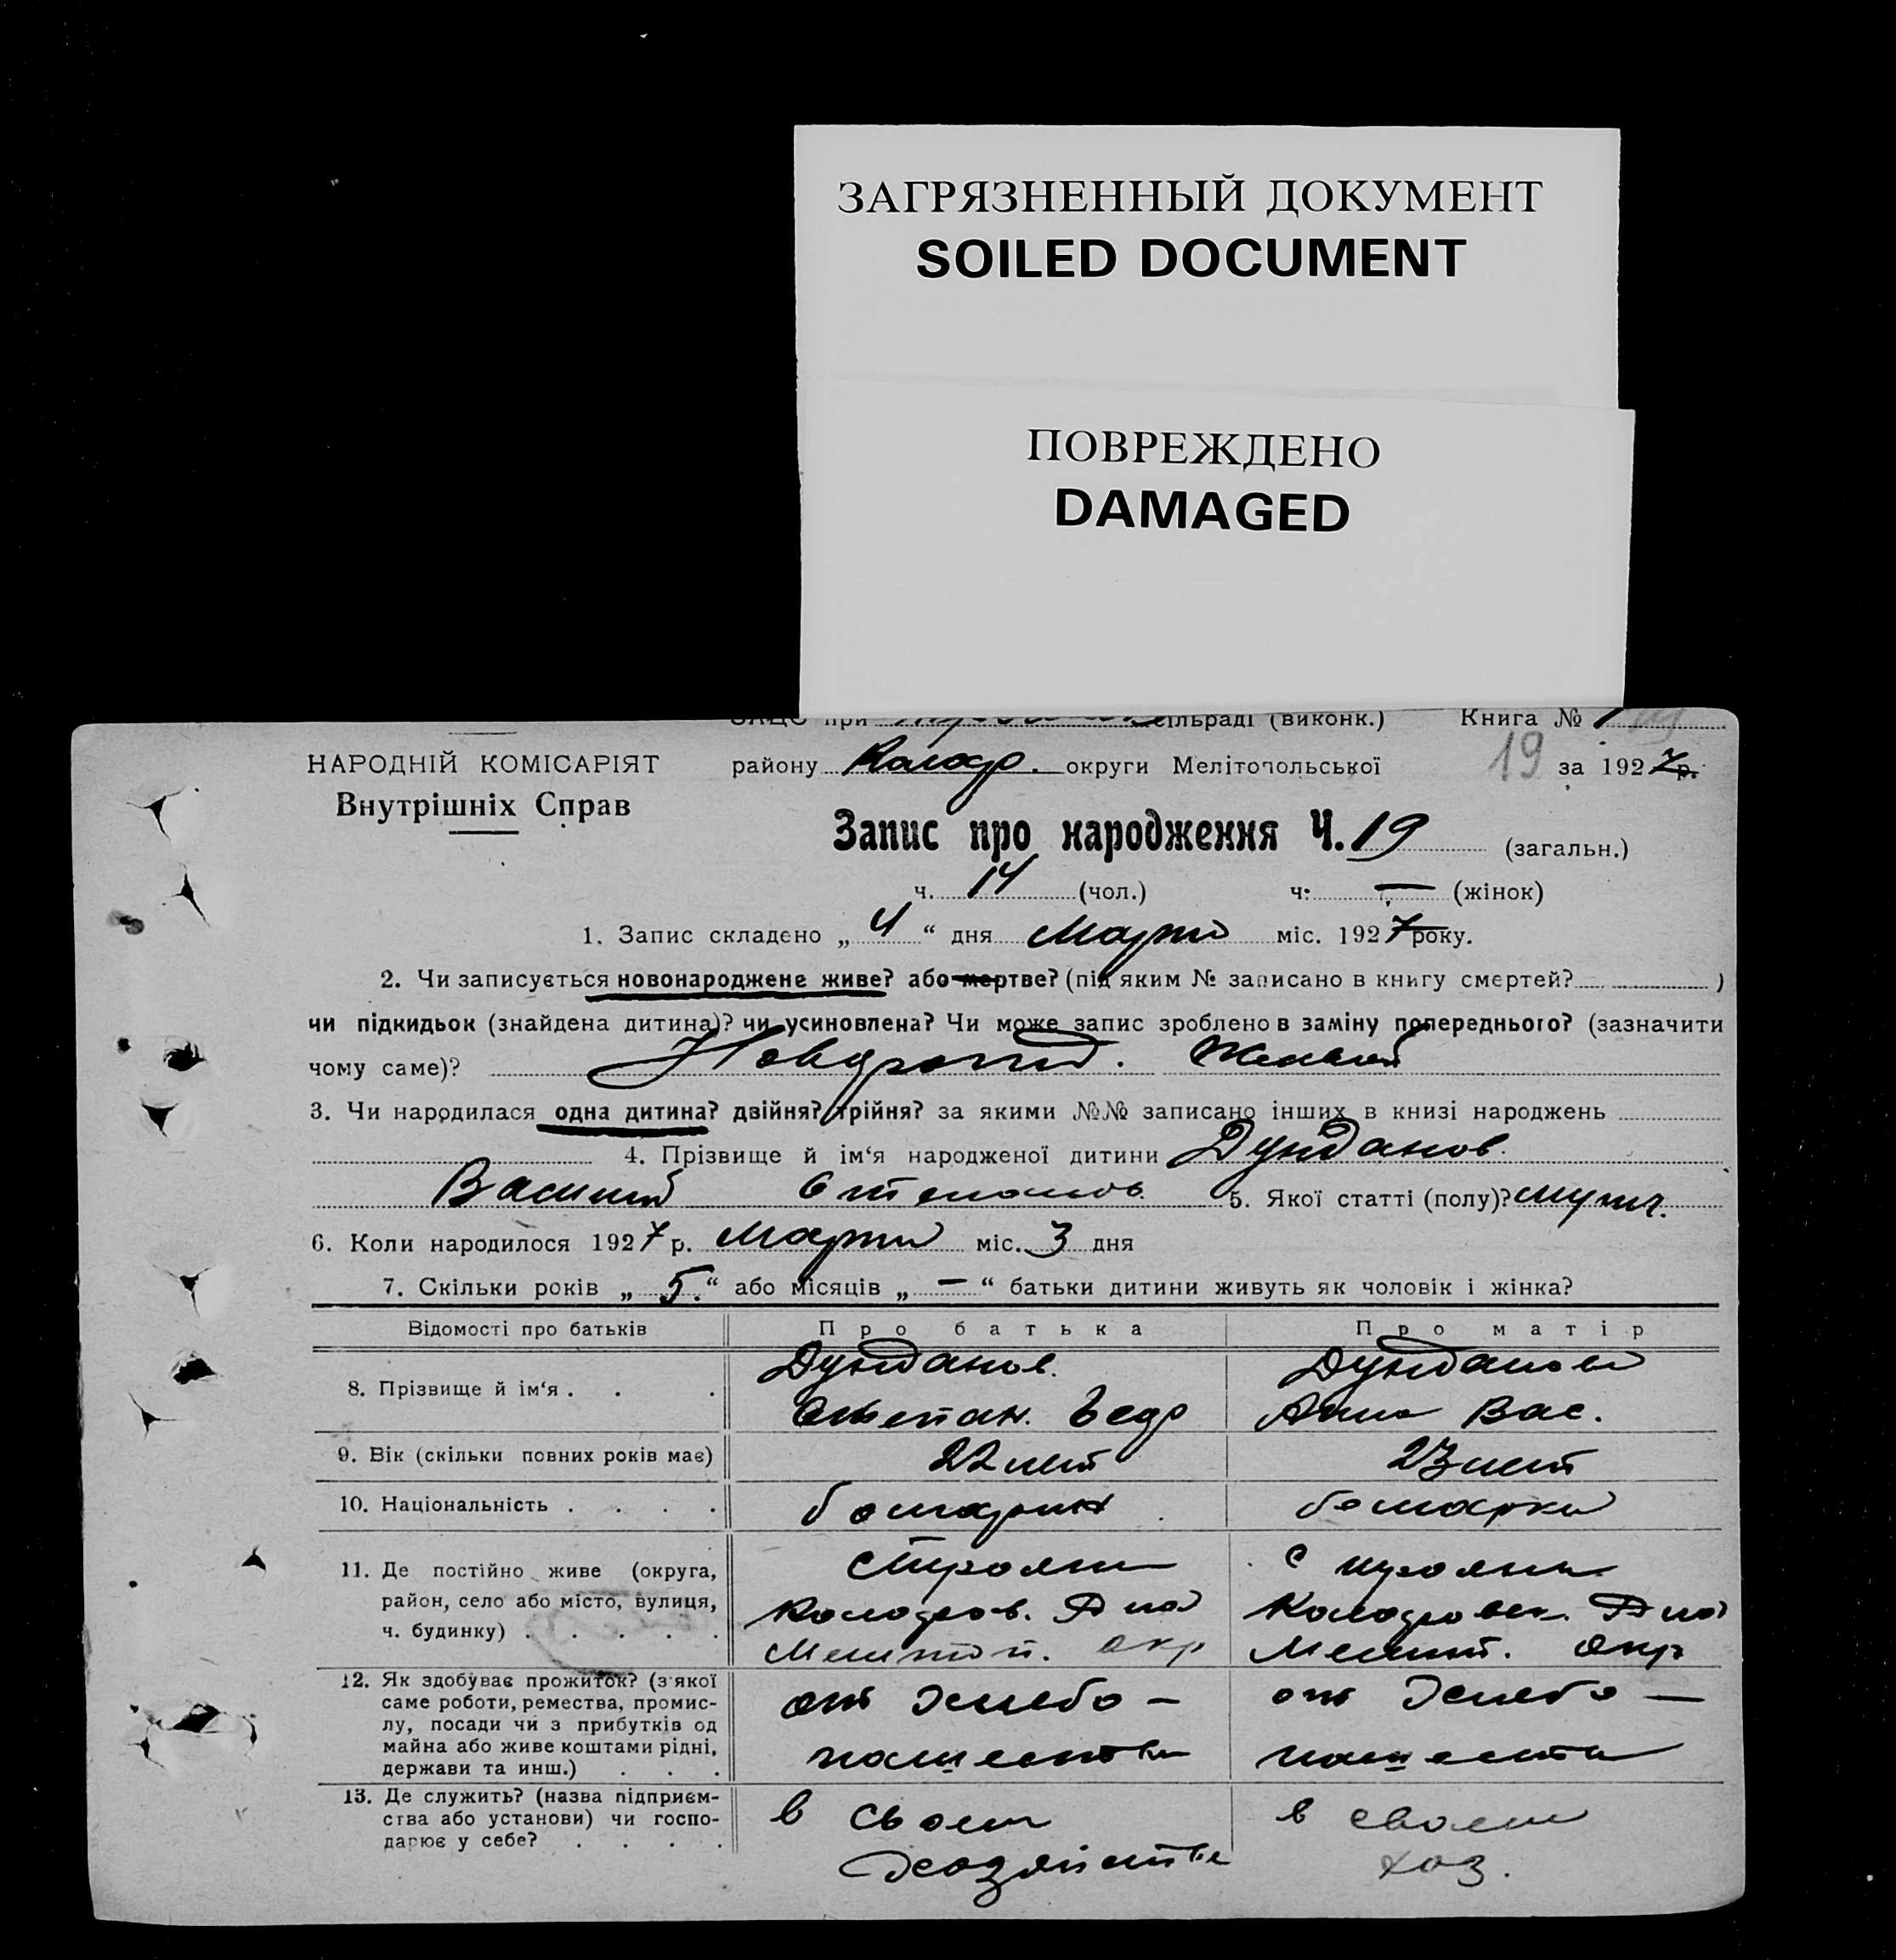 ЗАГРЯЗНЕННЫЙ ДОКУМЕНТ
SOILED DOCUMENT
ПОВРЕЖДЕНО
DAMAGED
при сільраді (виконк.) Книга № 1
НАРОДНІЙ КОМІСАРІЯТ
Внутрішніх Справ
району Колар. округи Мелітопольської 19 за 1927 р.
Запис про народження Ч. 19 (загальн.)
ч. 14 (чол.) ч: — (жінок)
1. Запис складено „ 4 “ дня Марта міс. 1927 року.
2. Чи записується новонароджене живе? або мертве? (під яким № записано в книгу смертей? )
чи підкидьок (знайдена дитина)? чи усиновлена? Чи може запис зроблено в заміну попереднього? (зазначити
чому саме)? Живой
3. Чи народилася одна дитина? двійня? трійня? за якими №№ записано інших в книзі народжень
4. Прізвище й ім‘я народженої дитини Дунданов
Василий Степанов. 5. Якої статті (полу)? мужч.
6. Коли народилося 1927 р. Марта міс. 3 дня
7. Скільки років „ 5. “ або місяців „ — “ батьки дитини живуть як чоловік і жінка?
Відомості про батьків Про батька Про матір
8. Прізвище й ім‘я . . . Дунданов. Дунданова
Степан. Анна Вас.
9. Вік (скільки повних років має) 22 лет 23 лет
10. Національність . . . . болгарин болгарка
11. Де постійно живе (округа, с. Трояны
район, село або місто, вулиця,
ч. будинку) . . . . . Мелитоп. окр Мелит. окр
12. Як здобуває прожиток? (з якої
саме роботи, ремества, промис- от хлебо — от хлебо —
лу, посади чи з прибутків од
майна або живе коштами рідні, пашества пашества
держави та инш.) . . .
13. Де служить? (назва підприєм-
ства або установи) чи госпо- в своем в своем
дарює у себе? . . . .
хозяйстве хоз.